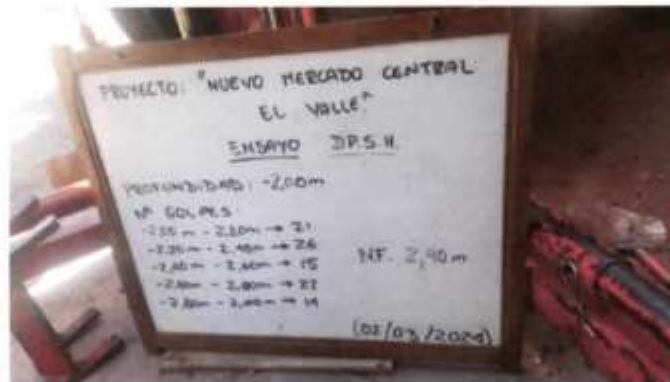 PROYECTO: "NUEVO MERCADO CENTRAL
EL VALLE"
ENSAYO D.P.S.H.
PROFUNDIDAD: -2,00m
Nº GOLPES:
-2,00m - 2,20m → 21
-2,20m - 2,40m → 26
-2,40m - 2,60m → 15
-2,60m - 2,80m →
-2,80m - 3,00m →
NF. 2,90m
/03/2024)